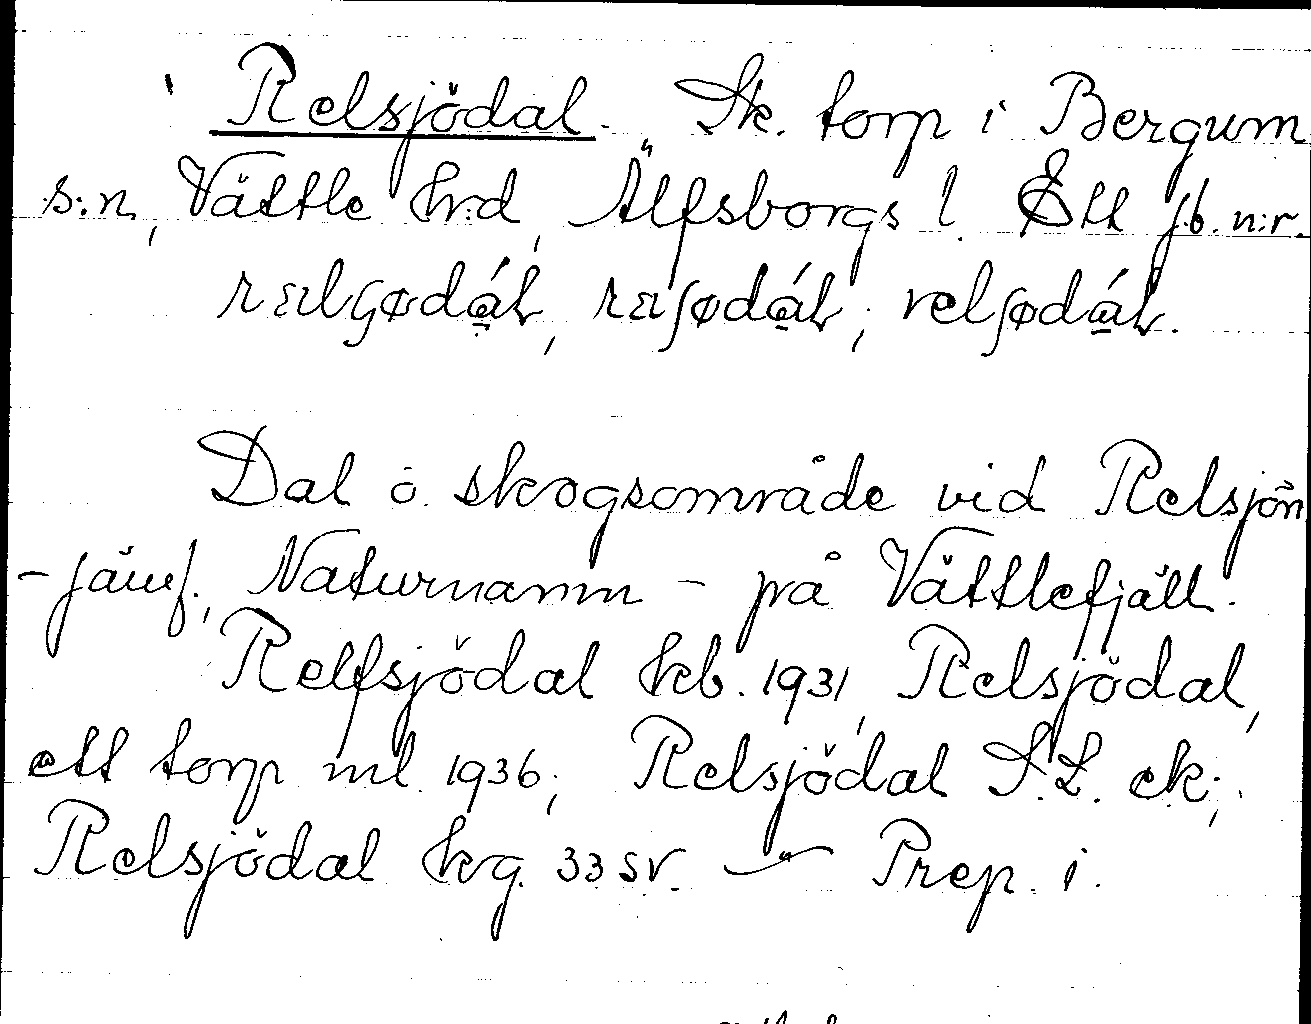 Relsjödal. Sk. torp i Bergum
s:n, Vättle hrd, Älfsborgs l. Ett jb. n:r.
Dal o. skogsområde vid Relsjön
- jämf., Naturnamn - på Vättlefjäll.
Relfsjödal hcb. 1931, Relsjödal,
ett torp ml 1936; Relsjödal S.L. ek;
Relsjödal kvg. 33 SV. — " — Prep. i.